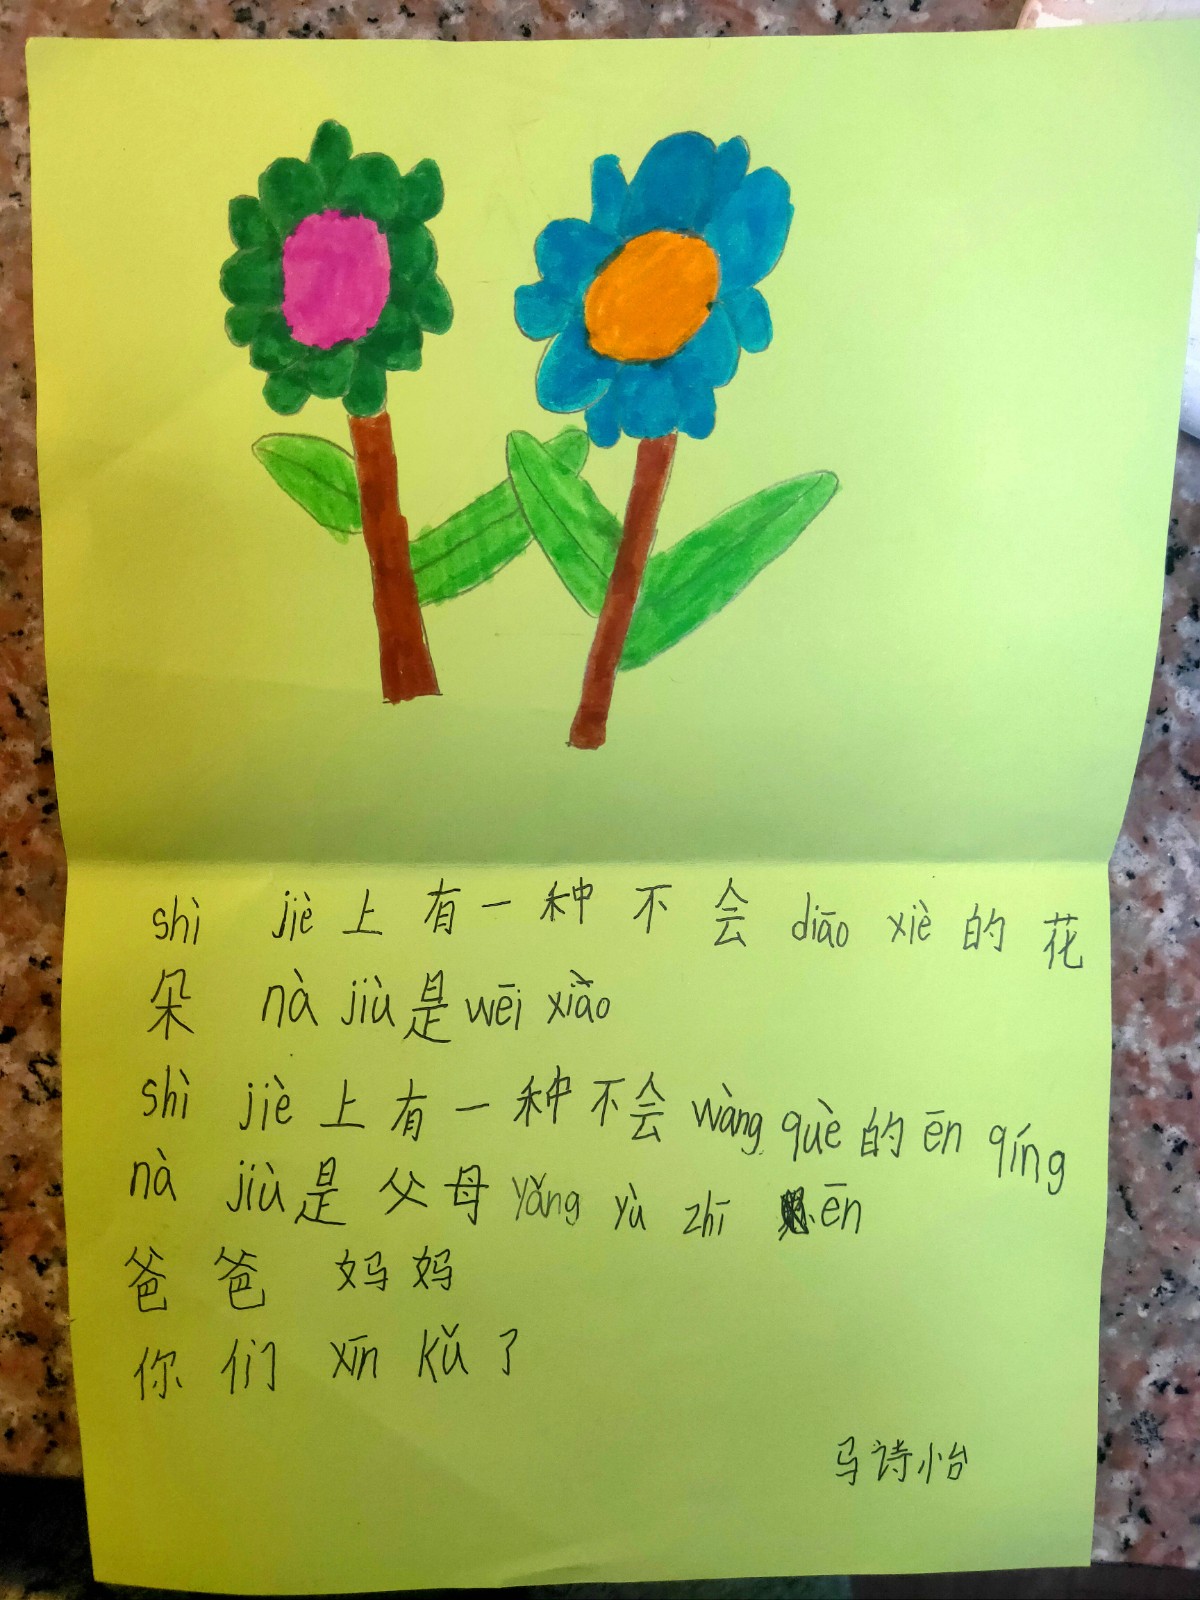 shì jiè 上 有 一 种 不 会 diāo xiè 的 花
朵 nà jiù 是 wēi xiào
shì jiè 上 有 一 种 不 会 wàng què 的 ēn qíng
nà jiù 是 父 母 yǎng yù zhī ēn
爸 爸 妈 妈
你 们 xīn kǔ 了
马诗怡